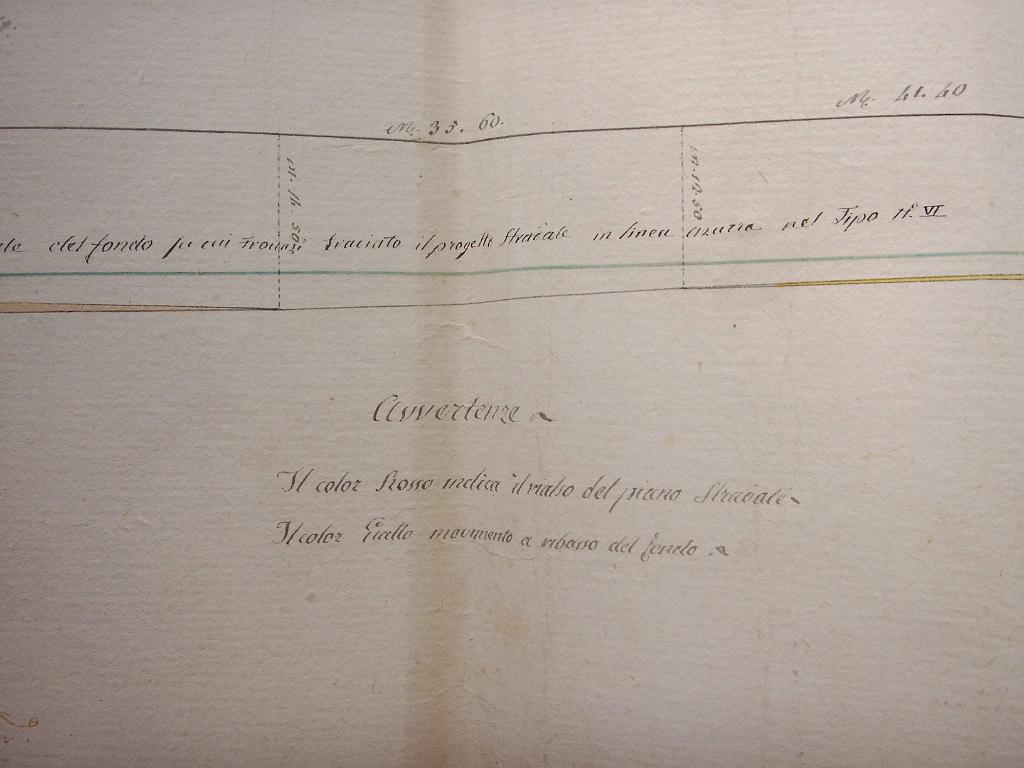 M. 41. 40
M. 35. 60.
m. 14. 50
m. 12. 50
del fondo su cui trovasi tracciato il progetto Stradale in linea nel Tipo N.° VI
Avvertenze
Il color Rosso indica il rialso del piano Stradale
Il color Giallo movimento a ribasso del fondo